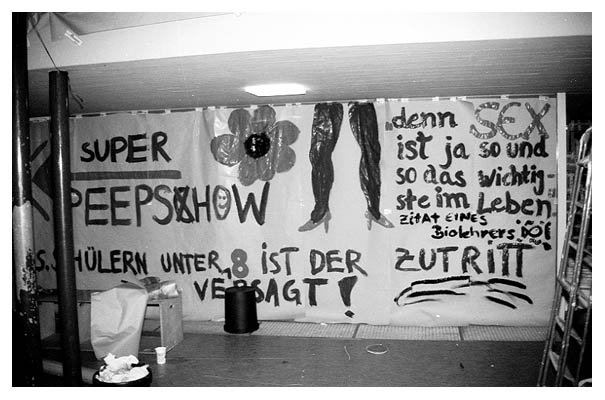 SUPER
PEEPSHOW
S.SCHÜLERN UNTER 18 IST DER ZUTRITT
VERSAGT!
„denn SEX
ist ja so und
so das wichtig-
ste im Leben
ZITAT EINES
Biolehrers